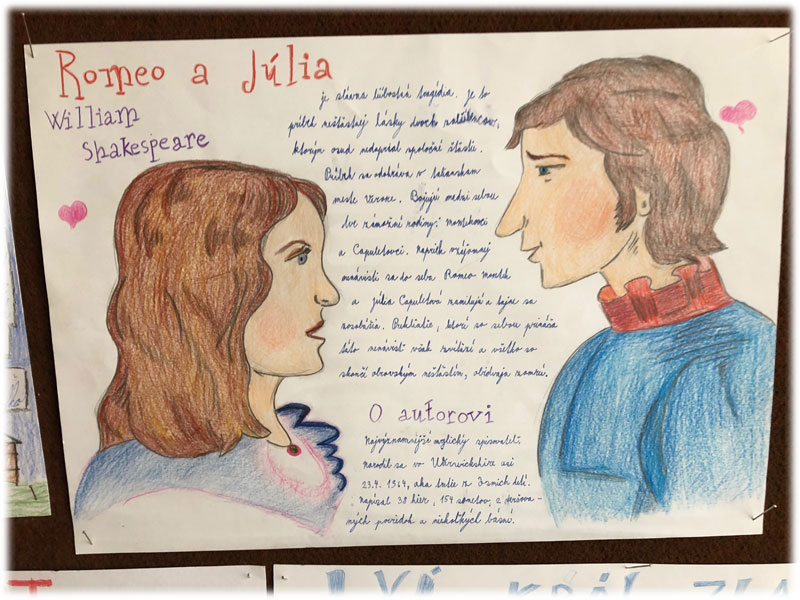 Romeo a Júlia
William
Shakespeare
je slávna ľúbostná tragédia. Je to
príbeh nešťastnej lásky dvoch milencov,
ktorým osud neprial spoločné šťastie.
Príbeh sa odohráva v talianskom
meste Verone. Bojujú medzi sebou
dve zámožné rodiny: Montekovci
a Capuletovci. Napriek vzájomnej
nenávisti sa do seba Romeo Montek
a Júlia Capuletová zamilujú a tajne sa
zosobášia. Prekliatie, ktoré so sebou prináša
táto nenávisť však zvíťazí a všetko sa
skončí obrovským nešťastím, obidvaja zomrú.
O autorovi
Najvýznamnejší anglický spisovateľ.
narodil sa vo Warwickshire asi
23.4. 1564, ako tretie z ôsmich detí.
Napísal 38 hier, 154 sonetov, 2
ných poviedok a niekoľkých básní.